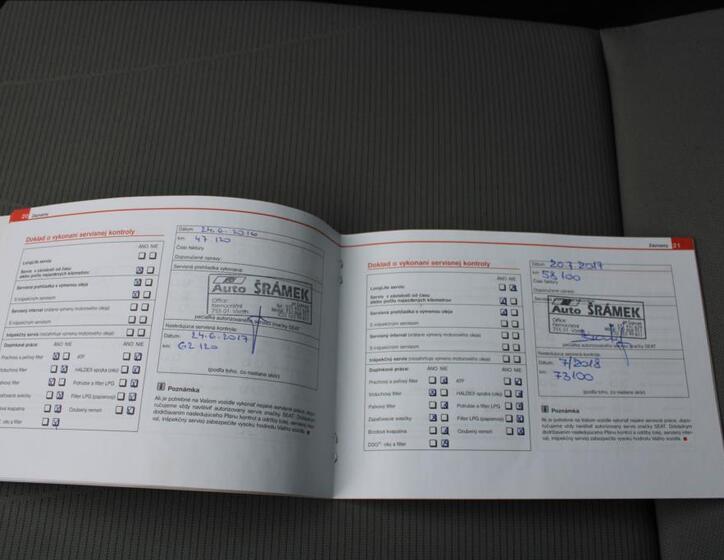 20 Záznamy
Doklad o vykonaní servisnej kontroly
ÁNO NIE
LongLife servis
Servis v závislosti od času
alebo počtu najazdených kilometrov
Servisná prehliadka s výmenou oleja
S inšpekčným servisom
Servisný interval (vrátane výmeny motorového oleja)
S inšpekčným servisom
Inšpekčný servis (neobsahuje výmenu motorového oleja)
Doplnkové práce: ÁNO NIE ÁNO NIE
Prachový a peľový filter ATF
Vzduchový filter HALDEX spojka (olej)
Palivový filter Potrubie a filter LPG
Zapaľovacie sviečky Filter LPG (papierový)
Brzdová kvapalina Ozubený remeň
olej a filter
Dátum: 24.6.2016
km: 47 120
Číslo faktúry
Doporučené opravy:
Servisná prehliadka vykonaná:
Auto ŠRÁMEK
Office
Nemocničná
pečiatka autorizovaného servisu značky SEAT
Nasledujúca servisná kontrola:
Dátum: 24.6.2017
km: 62 120
(podľa toho, čo nastane skôr)
Poznámka
Ak je potrebné na Vašom vozidle vykonať nejaké servisné práce, doporučujeme
vždy navštíviť autorizovaný servis značky SEAT. Dôsledným
dodržiavaním nasledujúceho Plánu kontrol a údržby (olej, servisný interval,
inšpekčný servis) zabezpečíte vysokú hodnotu Vášho vozidla.
Záznamy 21
Doklad o vykonaní servisnej kontroly
ÁNO NIE
LongLife servis
Servis v závislosti od času
alebo počtu najazdených kilometrov
Servisná prehliadka s výmenou oleja
S inšpekčným servisom
Servisný interval (vrátane výmeny motorového oleja)
S inšpekčným servisom
Inšpekčný servis (neobsahuje výmenu motorového oleja)
Doplnkové práce: ÁNO NIE ÁNO NIE
Prachový a peľový filter ATF
Vzduchový filter HALDEX spojka (olej)
Palivový filter Potrubie a filter LPG
Zapaľovacie sviečky Filter LPG (papierový)
Brzdová kvapalina Ozubený remeň
DSG®: olej a filter
Dátum: 20.7.2017
km: 58 100
Číslo faktúry
Doporučené opravy:
Servisná
Auto ŠRÁMEK
Office
Nemocničná
pečiatka autorizovaného servisu značky SEAT
Nasledujúca servisná kontrola:
Dátum: 7/2018
km: 73100
(podľa toho, čo nastane skôr)
Poznámka
Ak je potrebné na Vašom vozidle vykonať nejaké servisné práce, doporučujeme
vždy navštíviť autorizovaný servis značky SEAT. Dôsledným
dodržiavaním nasledujúceho Plánu kontrol a údržby (olej, servisný interval,
inšpekčný servis) zabezpečíte vysokú hodnotu Vášho vozidla.